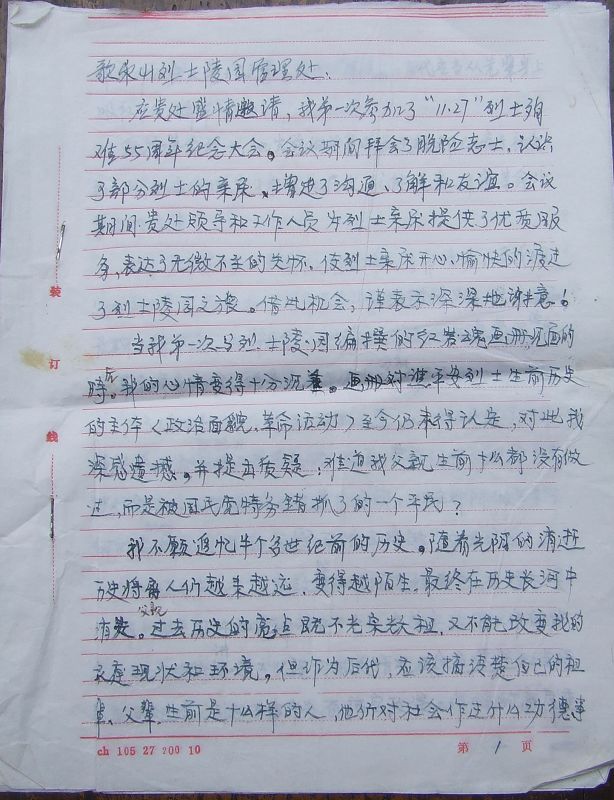 歌乐山烈士陵园管理处:
应贵处盛情邀请,我第一次参加了“11.27”烈士殉
难55周年纪念大会。会议期间拜会了脱险志士,认识
了部分烈士的亲属,增进了沟通、了解和友谊。会议
期间贵处领导和工作人员为烈士亲属提供了优质服
务,表达了无微不至的关怀,使烈士亲属开心、愉快的渡过
了烈士陵园之旅。借此机会,谨表示深深地谢意!
当我第一次与烈士陵园编撰的红岩魂画册见面的
时候,我的心情变得十分沉重。画册对 平安烈士生前历史
的主体〈政治面貌、革命活动〉至今仍未得认定,对此我
深感遗撼。并提出质疑:难道我父亲生前什么都没有做
过,而是被国民党特务错抓了的一个平民?
我不愿追忆半个多世纪前的历史。随着光阴的消逝
历史将 人们越来越远,变得越陌生,最终在历史长河中
消失。父亲过去历史的亮点既不光宗耀祖,又不能改变我的
家庭现状和环境。但作为后代,应该搞清楚自己的祖
辈、父辈,生前是什么样的人,他们对社会作过什么功德事
装
订
线
ch 105 27 200 10
第 1 页